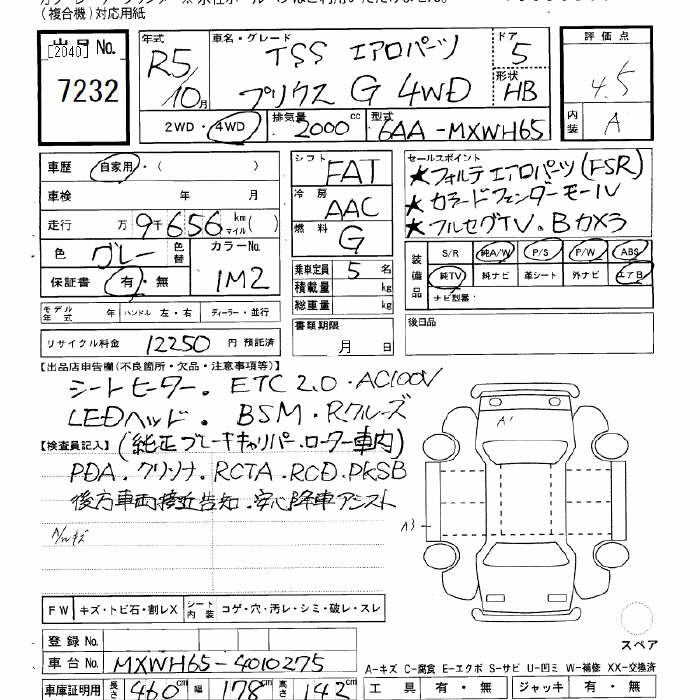 (複合機)対応用紙
出品No.
[2040]
7232
年式
R5/10月
車名・グレード
TSS エアロパーツ
プリウス G 4WD
ドア
5
形状
HB
評価点
4.5
内装
A
2WD・4WD
排気量
2000cc
型式
6AA-MXWH65
車歴 自家用・( )
車検 年 月
走行 万 9千656 km マイル( )
色 グレー 色替
カラーNo.
1M2
保証書 有・無
モデル年式 年 ハンドル 左・右 ディーラー・並行
リサイクル料金 12250 円 預託済
シフト
FAT
冷房
AAC
燃料
G
乗車定員 5 名
積載量 kg
総重量 kg
書類期限
月 日
セールスポイント
★フォルテエアロパーツ(FSR)
★カラードフェンダーモール
★フルセグTV。Bカメラ
装備品
S/R 純A/W P/S P/W ABS
純TV 純ナビ 革シート 外ナビ エアB
ナビ型番:
後日品
【出品店申告欄(不良箇所・欠品・注意事項等)】
シートヒーター。ETC2.0・AC100V
LEDヘッド。BSM・Rクルーズ
(純正ブレーキキャリパー・ローター車内)
【検査員記入】
PDA。クリソナ。RCTA。RCD。PKSB
後方車両接近告知。安心降車アシスト
A/Wキズ
A1
A3
FW キズ・トビ石・割レX
シート内装 コゲ・穴・汚レ・シミ・破レ・スレ
スペア
登録No.
車台No. MXWH65-4010275
A-キズ C-腐食 E-エクボ S-サビ U-凹ミ W-補修 XX-交換済
車庫証明用 長さ 460cm 幅 178cm 高さ 142cm
工具 有・無 ジャッキ 有・無